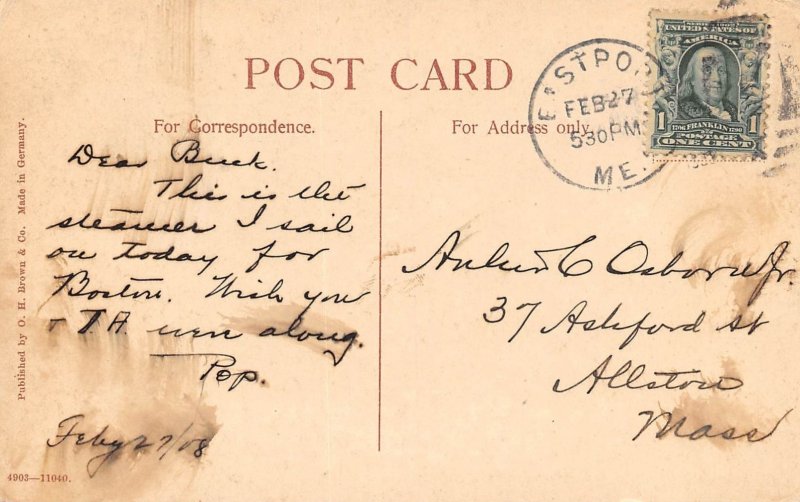 POST CARD
For Correspondence.
Dear Buck.
This is the
steamer I sail
on today for
Boston. Wish you
+ TA were along.
Pop.
Feby 27/08
4903—11040.
Published by O. H. Brown & Co. Made in Germany.
For Address only.
EASTPORT
FEB 27
530PM
ME.
SERIES 1902
UNITED STATES OF
AMERICA
1 1
1706 FRANKLIN 1790
POSTAGE
ONE CENT
Arthur C Osborn Jr.
37 Ashford St
Allston
Mass